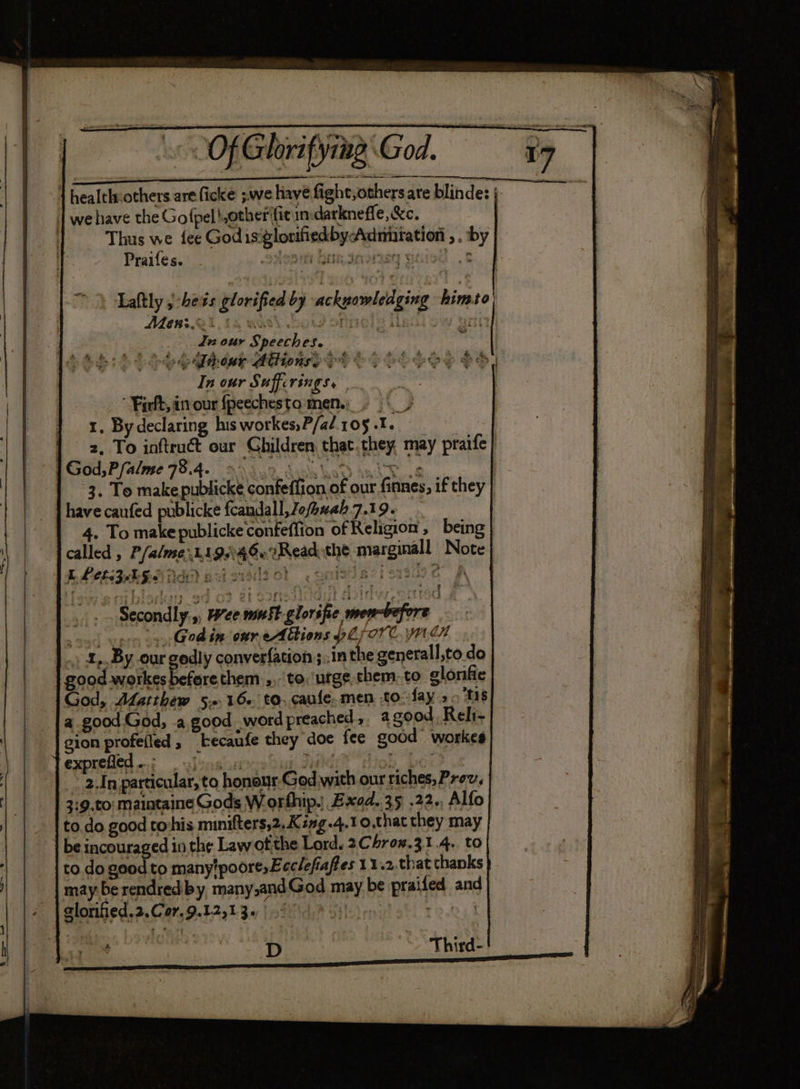 Of Glorifying God. 17
health:others are ſicke ;we have ſight,others are blinde:
we have the Goſpell,other ſit in darkneſſe,&c.
Thus we ſee God is glorified by Admiration, by
Praiſes.
Laſtly, he is glorified by acknowledging him to
Men:
In our Speeches.
In our Actions.
In our Sufferings.
Firſt, in our ſpeeches to men.
1. By declaring his workes,Pſal.105.1.
2. To inſtruct our Children that they may praiſe
God,Pſalme 78.4.
3. To make publicke confeſſion of our ſinnes, if they
have cauſed publicke ſcandall,Joſhuah 7.19.
4. To make publicke confeſſion of Religion, being
called, Pſalme 119.46. Read the marginall Note
1. Pet.3.
Secondly, Wee muſt glorifie
God in our Actions before men
1. By our godly converſation; in the generall,to do
good workes before them, to urge them to glorifie
God, Matthew 5. 16. to cauſe men to ſay, 'tis
a good God, a good word preached, a good Reli-
gion profeſſed, becauſe they doe ſee good workes
expreſſed.
2.In particular, to honour God with our riches,Prov.
3:9.to maintaine Gods Worſhip. Exod.35.22. Alſo
to do good to his miniſters,2.King.4.10.that they may
be incouraged in the Law of the Lord. 2Chron.31.4. to
to do good to many poore,Eccleſiaſtes 11.2.that thanks
may be rendred by many,and God may be praiſed and
glorified.2.Cor.9.12,13.
D Third-